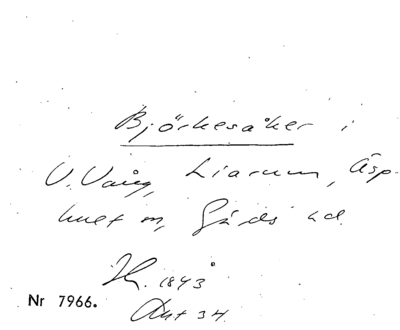 Björkesåker i
V. Vång, Liarum, Äsp-
huet m, Gärds hd.
1843
Nr 7966.
34